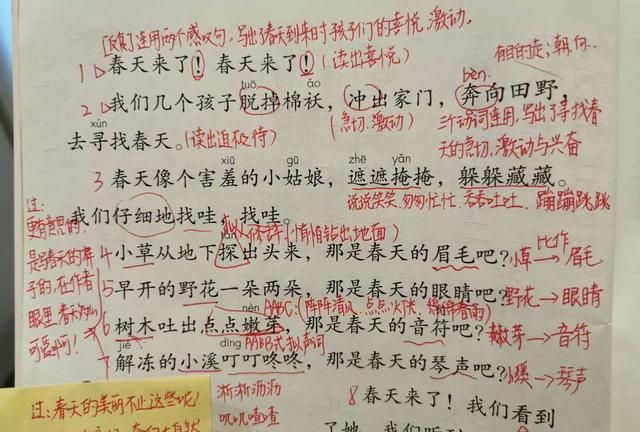 [反复]连用两个感叹句,写出了春天到来时孩子们的喜悦、激动。
有目的走;朝、向..
1 春天来了!春天来了!(读出喜悦)
tuō ǎo bèn
2 我们几个孩子脱掉棉袄,冲出家门,奔向田野,
xún
去寻找春天。(读出迫不及待) (急切、激动) 三个动词连用,写出了寻找春
天的急切、激动与兴奋
xiū gū zhē yǎn
3 春天像个害羞的小姑娘,遮遮掩掩,躲躲藏藏。
说说笑笑、匆匆忙忙、吞吞吐吐、蹦蹦跳跳
我们仔细地找哇,找哇。
拟人修辞(悄悄钻出地面)
tàn
4 小草从地下探出头来,那是春天的眉毛吧?小草比作→眉毛
5 早开的野花一朵两朵,那是春天的眼睛吧?野花→眼睛
nèn
AABC:(阵阵清风、点点灯光
6 树木吐出点点嫩芽,那是春天的音符吧?嫩芽→音符
jiě dīng AABB式拟声词
7 解冻的小溪叮叮咚咚,那是春天的琴声吧?小溪→琴声
淅淅沥沥
叽叽喳喳
8 春天来了!我们看到
了她,我们听到
过:
更有意思的
是春天的样
子的,在作者
眼里,春天
可爱啊!
过:春天的美丽不止这些呢!